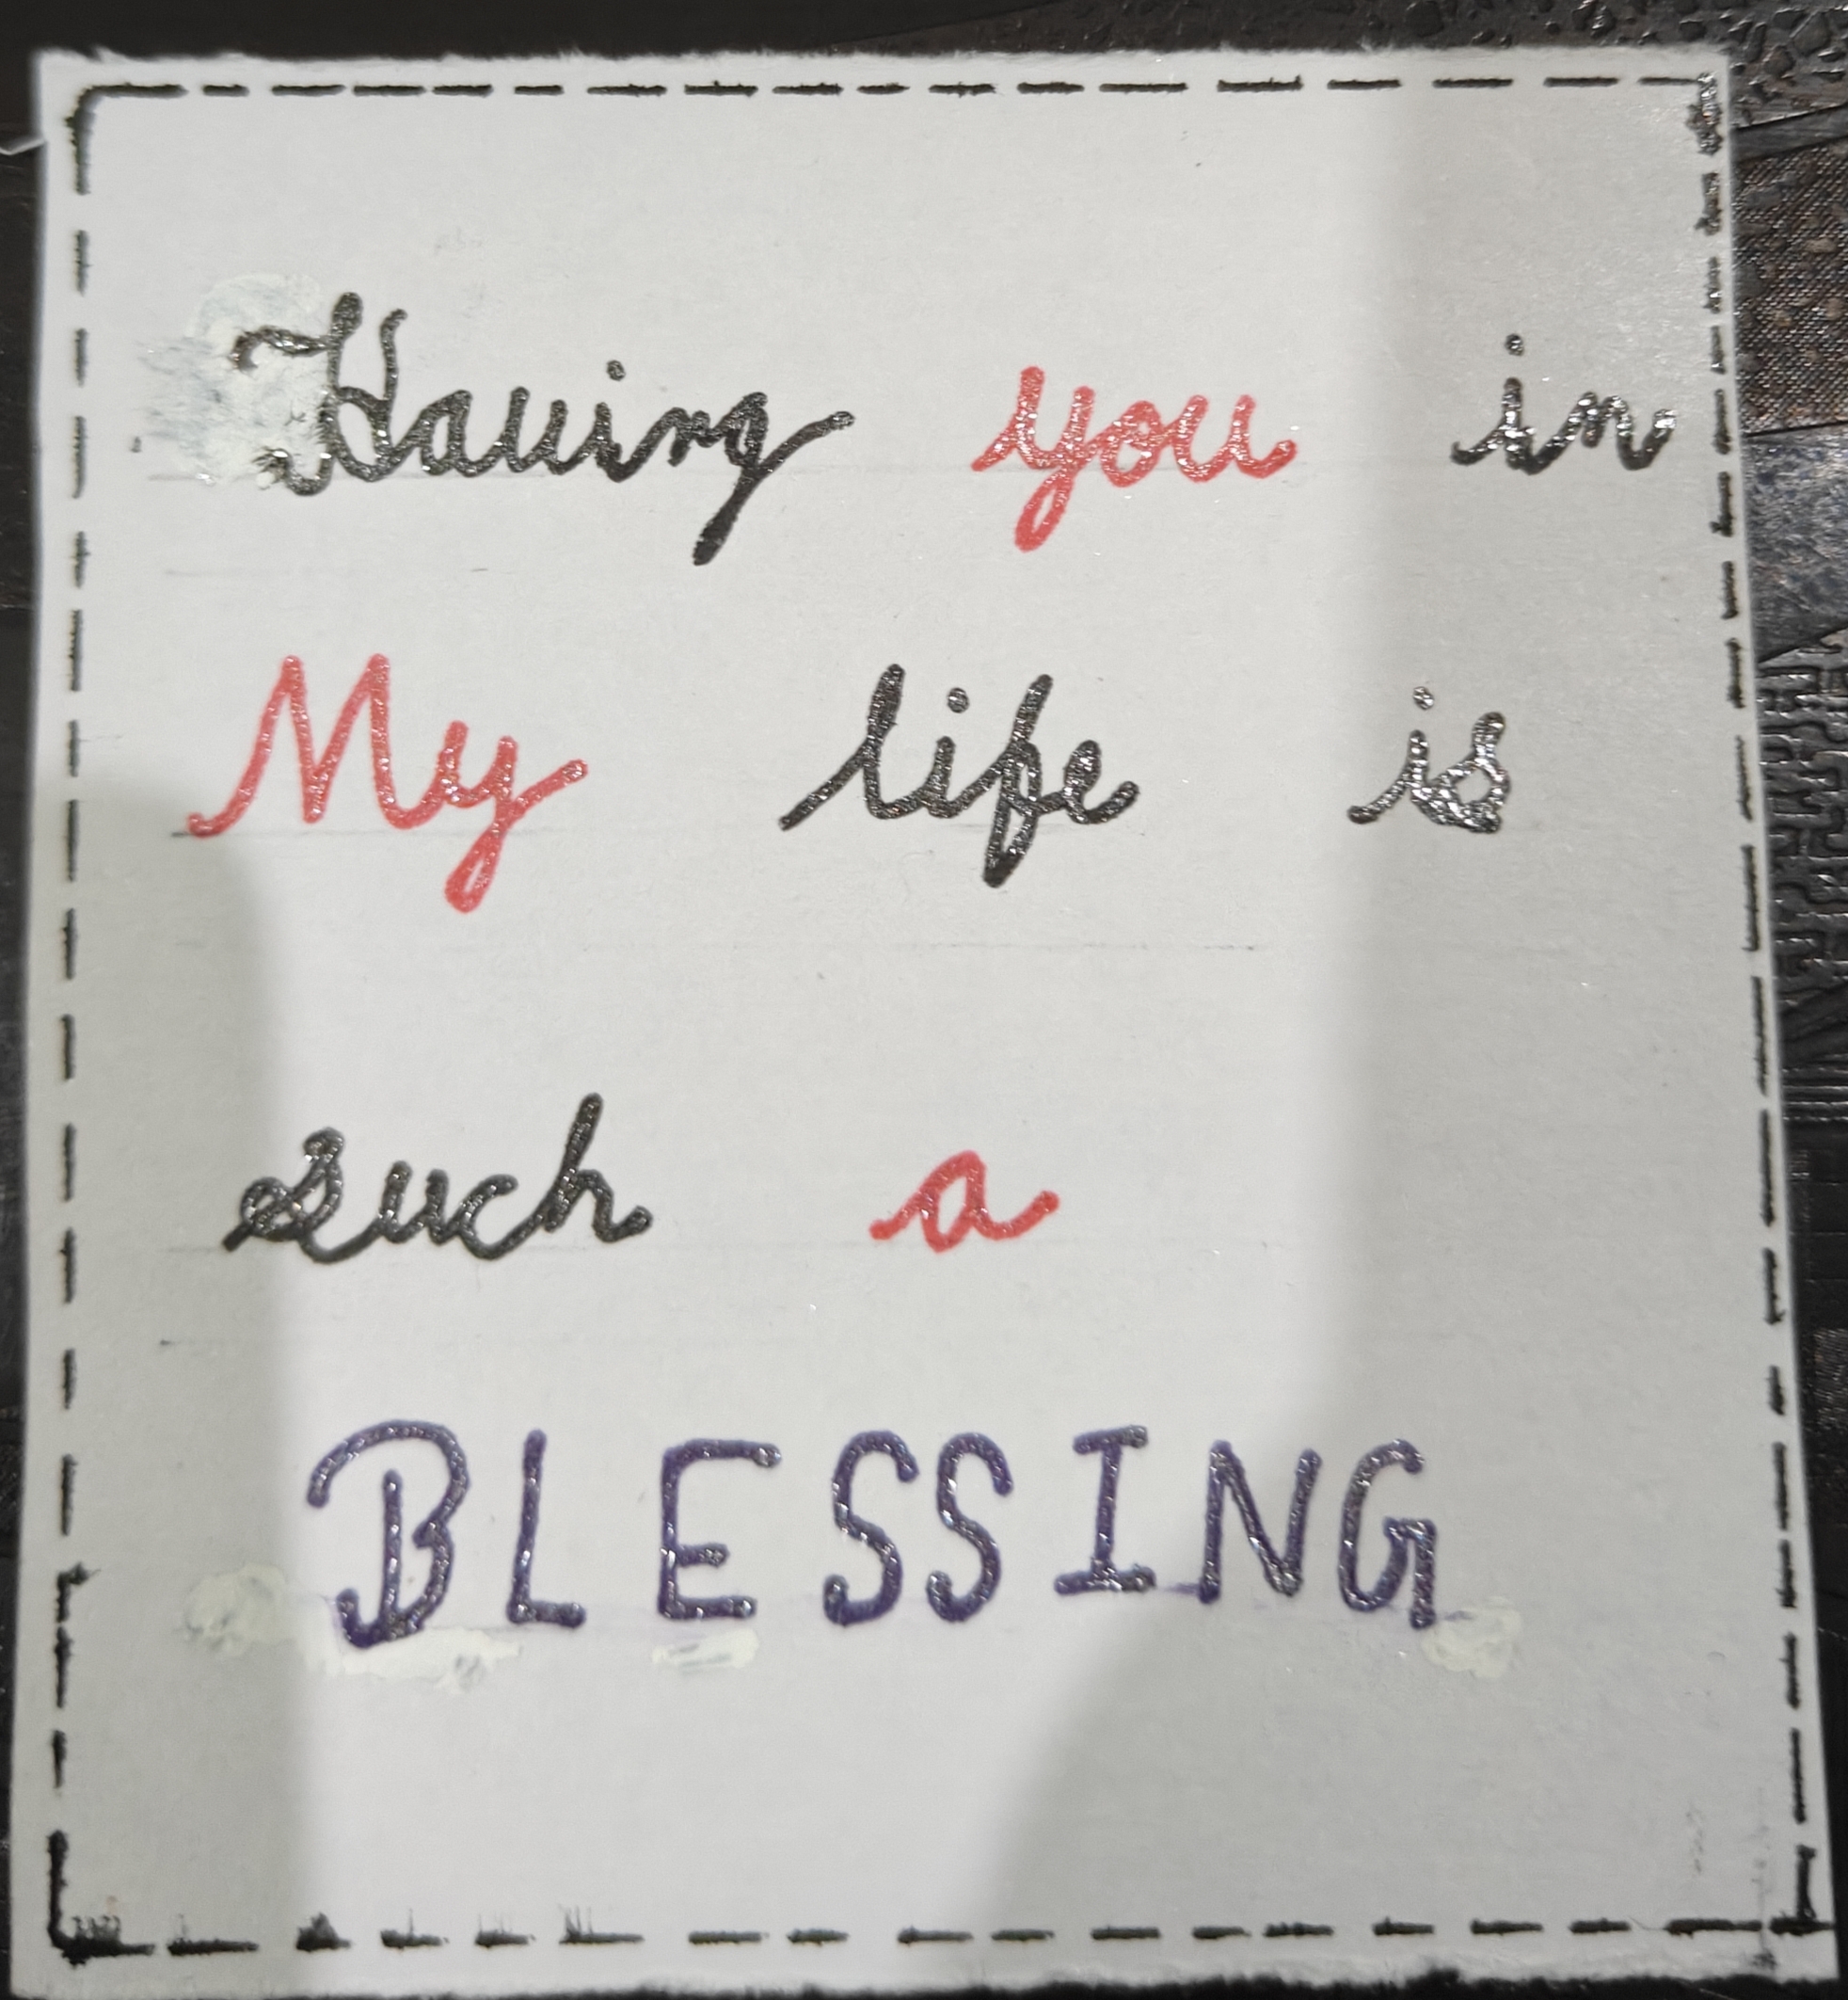 Having you in
My life is
such a
BLESSING